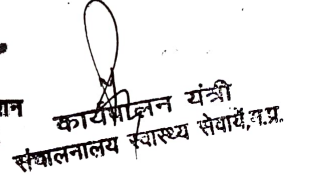 कार्यपालन यंत्री
संचालनालय स्वास्थ्य सेवायें, म.प्र.